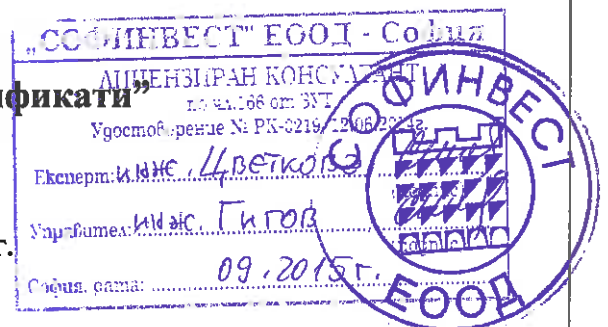 „СОФИНВЕСТ" ЕООД - София
ЛИЦЕНЗИРАН КОНСУЛТАНТ
ификати”
по чл.166 от ЗУТ
Удостоверение № РК-0219/12.06.2014г.
Експерт: инж. Цветкова
Управител: инж. Гигов
г.
София, дата: 09.2015г.
СОФИНВЕСТ
ЕООД